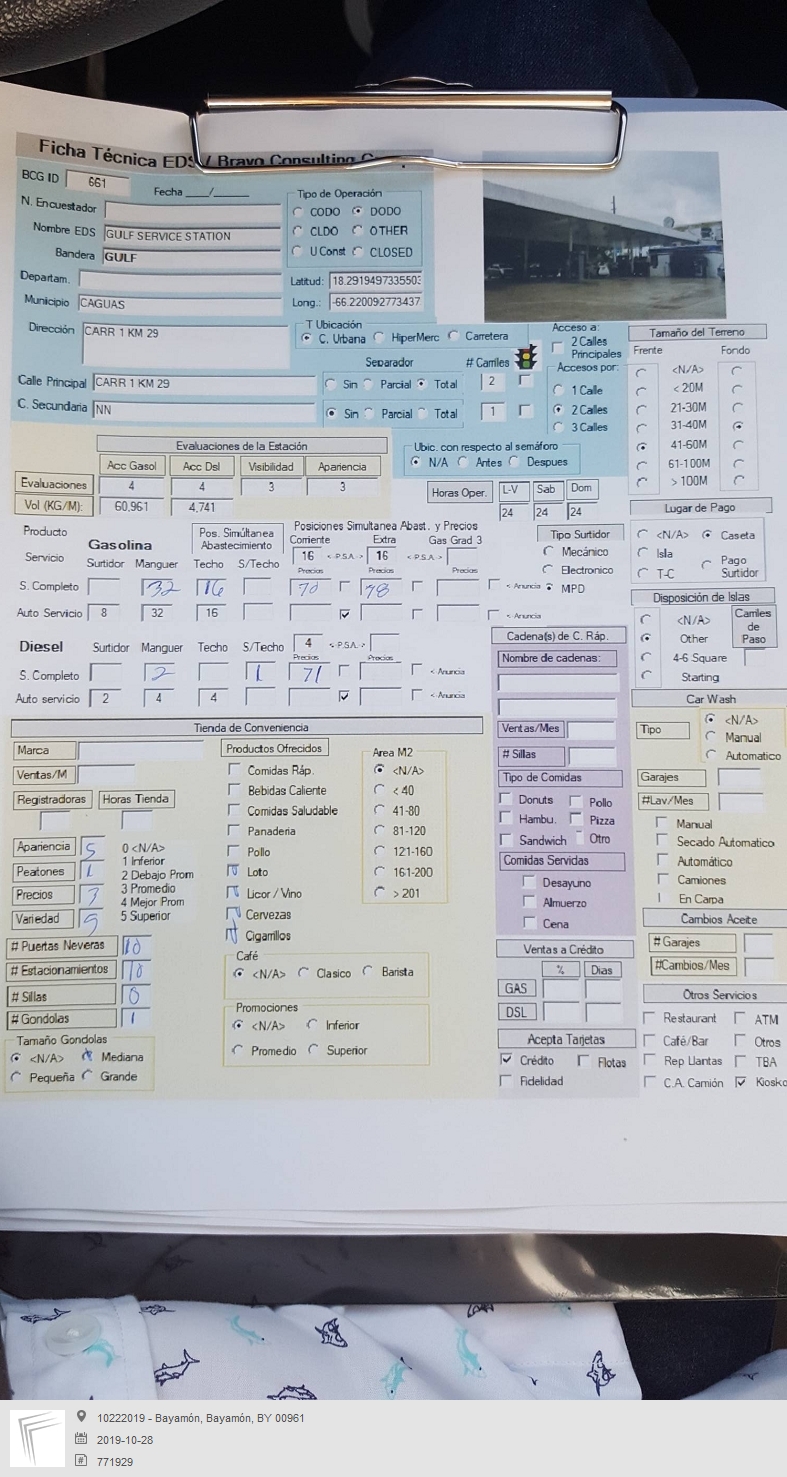 Ficha Técnica EDS / Bravo Consulting
BCG ID 661 Fecha ___/___
N. Encuestador
Nombre EDS GULF SERVICE STATION
Bandera GULF
Departam.
Municipio CAGUAS
Dirección CARR 1 KM 29
Calle Principal CARR 1 KM 29
C. Secundaria NN
Tipo de Operación
CODO DODO
CLDO OTHER
U Const CLOSED
Latitud: 18.2919497335503
Long.: -66.220092773437
T Ubicación
C. Urbana HiperMerc Carretera
Separador # Carriles
Sin Parcial Total 2
Sin Parcial Total 1
Acceso a:
2 Calles
Principales
Accesos por:
1 Calle
2 Calles
3 Calles
Tamaño del Terreno
Frente Fondo
<N/A>
< 20M
21-30M
31-40M
41-60M
61-100M
> 100M
Evaluaciones de la Estación
Acc Gasol Acc Dsl Visibilidad Apariencia
Evaluaciones 4 4 3 3
Vol (KG/M): 60,961 4,741
Ubic. con respecto al semáforo
N/A Antes Despues
Horas Oper. L-V Sab Dom
24 24 24
Lugar de Pago
<N/A> Caseta
Isla
T-C Pago
Surtidor
Producto
Servicio
Gasolina
Surtidor Manguer
Pos. Simúltanea
Abastecimiento
Techo S/Techo
Posiciones Simultanea Abast. y Precios
Corriente Extra Gas Grad 3
16 <-P.S.A.-> 16 <-P.S.A.->
Precios Precios Precios
S. Completo 32 16 70 78 < Anuncia
Auto Servicio 8 32 16 < Anuncia
Tipo Surtidor
Mecánico
Electronico
MPD
Disposición de Islas
<N/A>
Other
4-6 Square
Starting
Carriles
de
Paso
Diesel Surtidor Manguer Techo S/Techo 4 <-P.S.A.->
Precios Precios
S. Completo 2 1 71 < Anuncia
Auto servicio 2 4 4 < Anuncia
Cadena(s) de C. Ráp.
Nombre de cadenas:
Ventas/Mes
# Sillas
Tipo de Comidas
Donuts Pollo
Hambu. Pizza
Sandwich Otro
Comidas Servidas
Desayuno
Almuerzo
Cena
Car Wash
Tipo <N/A>
Manual
Automatico
Garajes
#Lav/Mes
Manual
Secado Automatico
Automático
Camiones
En Carpa
Cambios Aceite
# Garajes
#Cambios/Mes
Tienda de Conveniencia
Marca
Ventas/M
Registradoras Horas Tienda
Apariencia 5
Peatones 1
Precios 3
Variedad 5
0 <N/A>
1 Inferior
2 Debajo Prom
3 Promedio
4 Mejor Prom
5 Superior
# Puertas Neveras 10
# Estacionamientos 10
# Sillas 0
# Gondolas 1
Tamaño Gondolas
<N/A> Mediana
Pequeña Grande
Productos Ofrecidos
Comidas Ráp.
Bebidas Caliente
Comidas Saludable
Panaderia
Pollo
Loto
Licor / Vino
Cervezas
Cigarrillos
Area M2
<N/A>
< 40
41-80
81-120
121-160
161-200
> 201
Café
<N/A> Clasico Barista
Promociones
<N/A> Inferior
Promedio Superior
Ventas a Crédito
% Dias
GAS
DSL
Acepta Tarjetas
Crédito Flotas
Fidelidad
Otros Servicios
Restaurant ATM
Café/Bar Otros
Rep Llantas TBA
C.A. Camión Kiosko
10222019 - Bayamón, Bayamón, BY 00961
2019-10-28
771929